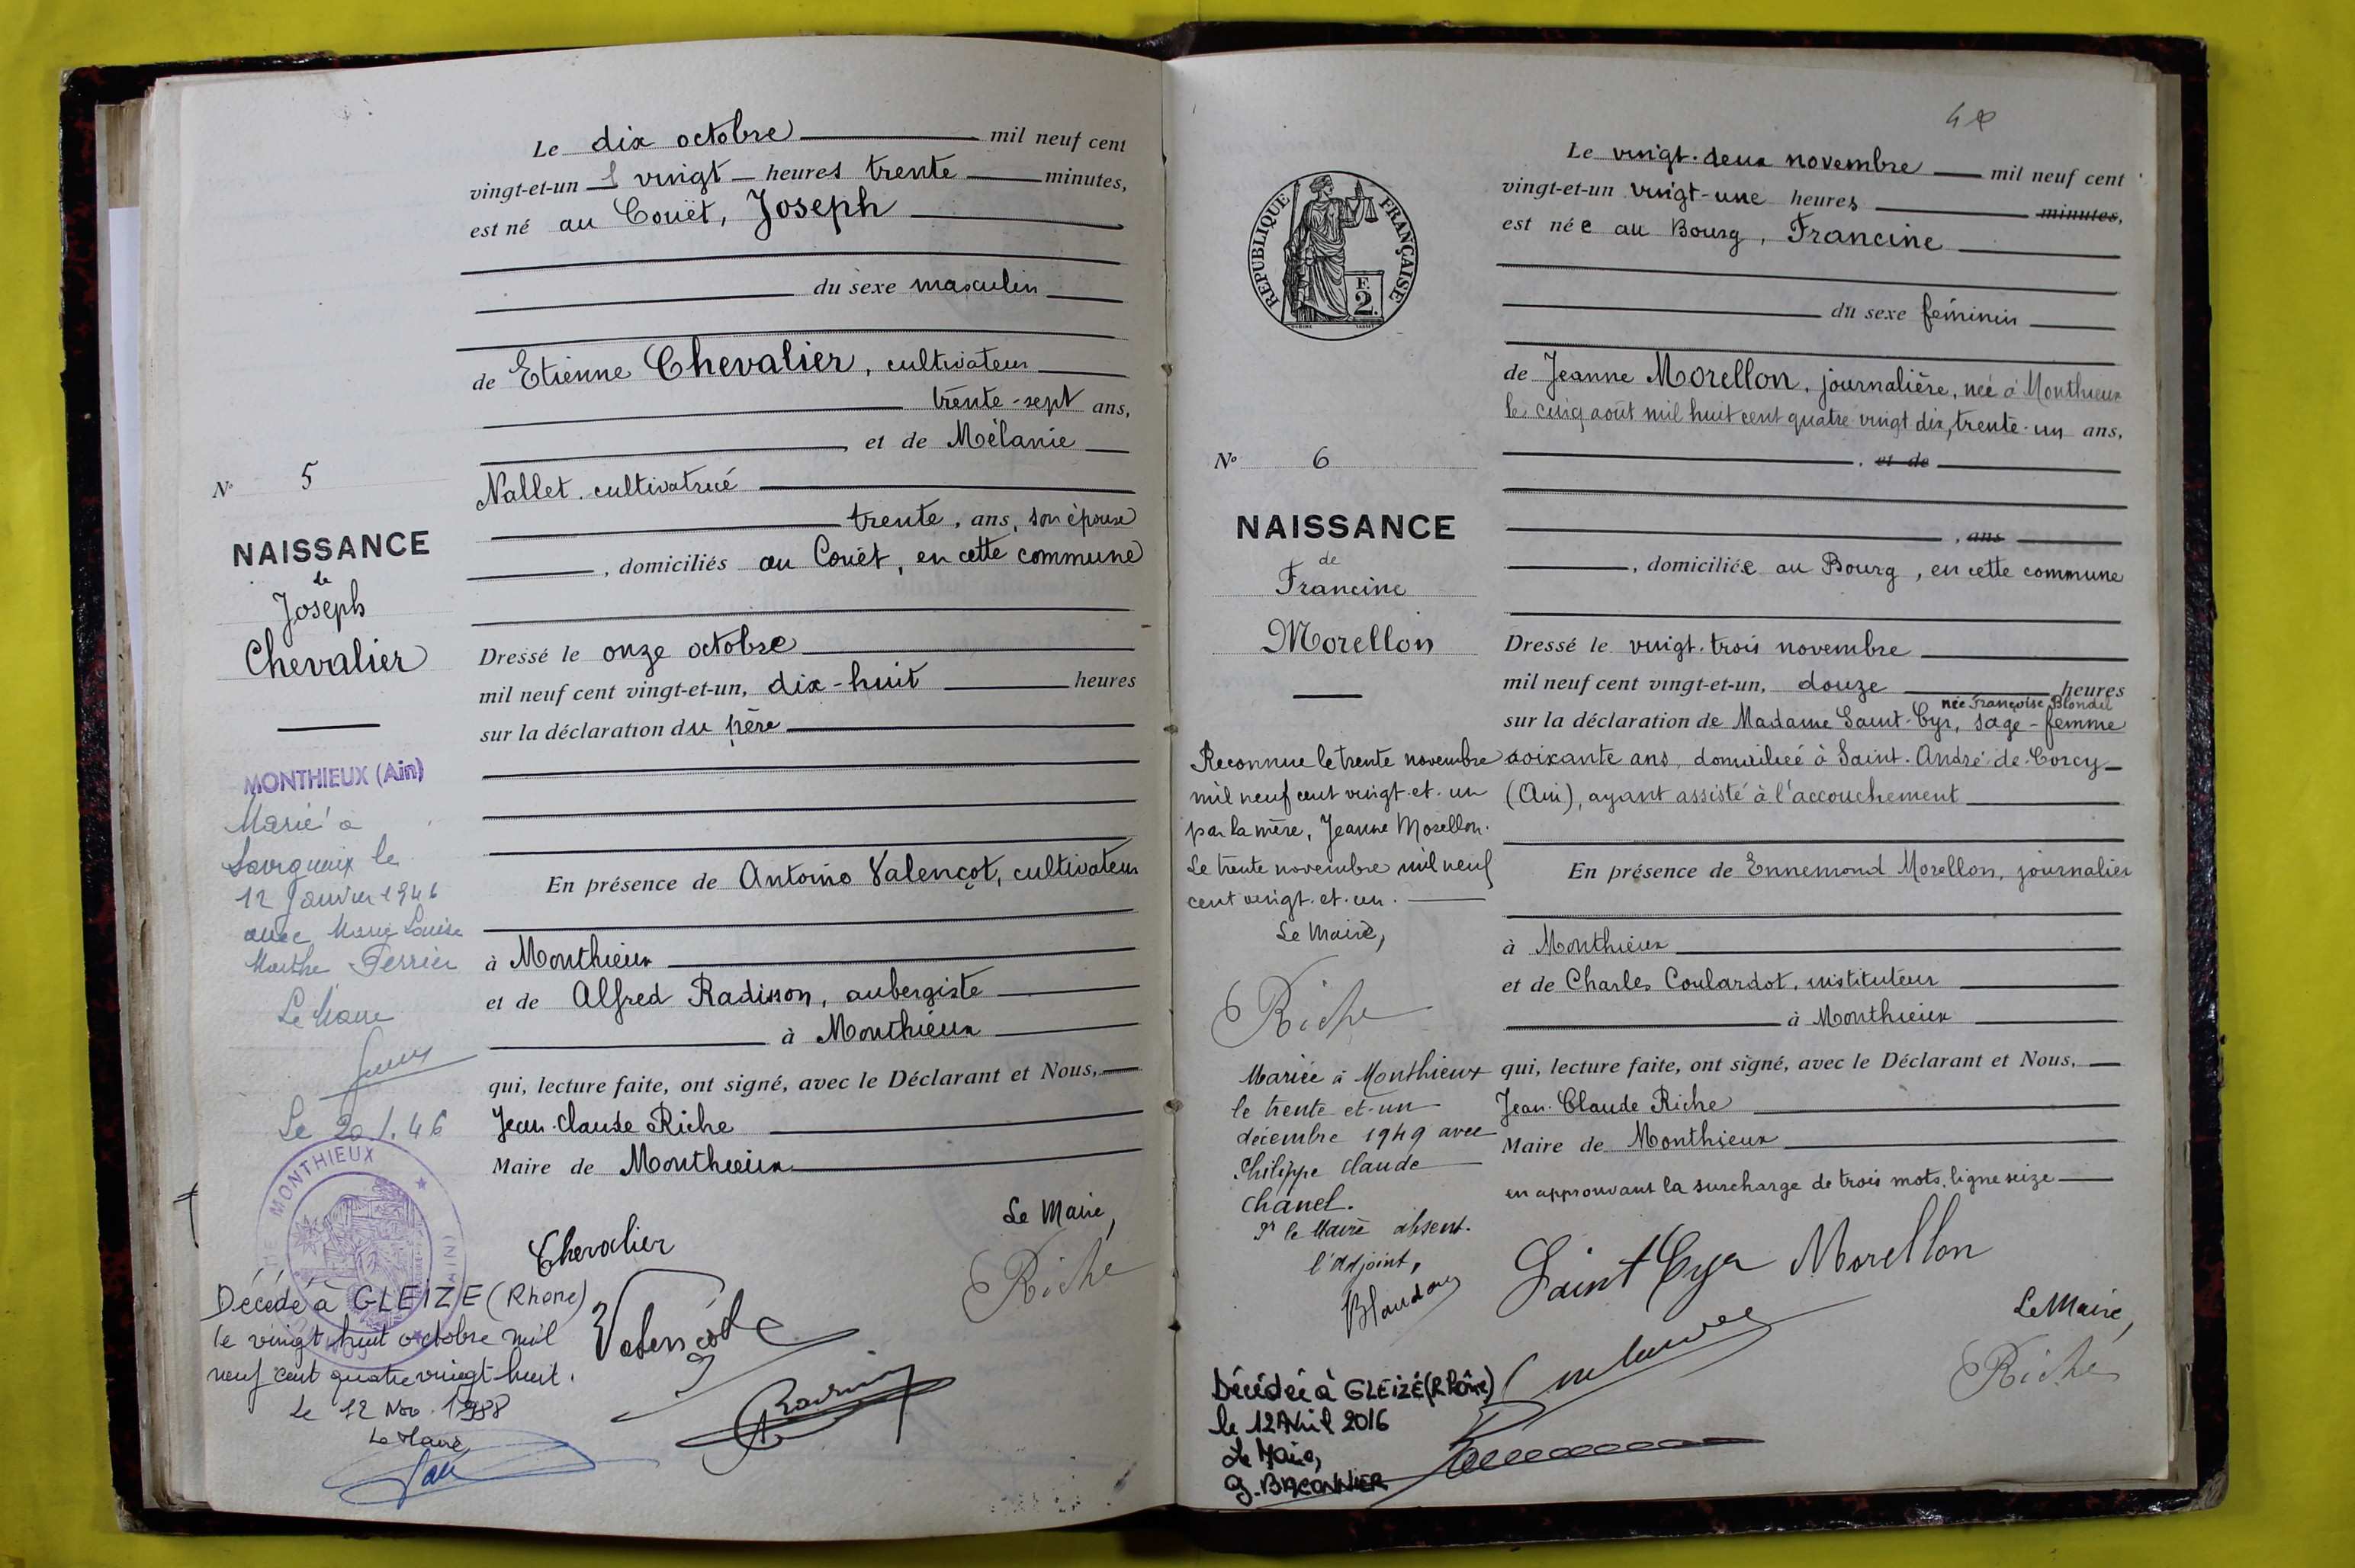 Le dix octobre mil neuf cent
vingt-et-un à vingt heures trente minutes,
est né au Couët, Joseph
du sexe masculin
de Etienne Chevalier, cultivateur
trente-sept ans,
et de Mélanie
Nallet, cultivatrice
trente, ans, son épouse
, domiciliés au Couët, en cette commune
Dressé le onze octobre
mil neuf cent vingt-et-un, dix-huit heures
sur la déclaration du père
En présence de Antoine Valençot, cultivateur
à Monthieux
et de Alfred Radisson, aubergiste
à Monthieux
qui, lecture faite, ont signé, avec le Déclarant et Nous,
Jean-Claude Riche
Maire de Monthieux
Le Maire,
Chevalier
Riche
Valençot
N° 5
NAISSANCE
de
Joseph
Chevalier
MONTHIEUX (Ain)
Marié à
le
12 Janvier 1946
avec Marie Louise
Marthe Perrier
Le Maire
Le 20.1.46
MONTHIEUX
(AIN)
Décédé à GLEIZE (Rhône)
le vingt huit octobre mil
neuf cent quatre vingt-huit.
Le 12 Nov. 1988
Le Maire
48
Le vingt-deux novembre mil neuf cent
vingt-et-un vingt-une heures minutes,
est née au Bourg, Francine
du sexe féminin
de Jeanne Morellon, journalière, née à Monthieux
le cinq août mil huit cent quatre-vingt dix, trente-un ans,
, et de
, ans
, domiciliée au Bourg, en cette commune
Dressé le vingt-trois novembre
mil neuf cent vingt-et-un, douze heures
née Françoise Blondel
sur la déclaration de Madame Saint-Cyr, sage-femme
soixante ans, domiciliée à Saint-André-de-Corcy
(Ain), ayant assisté à l'accouchement
En présence de Ennemond Morellon, journalier
à Monthieux
et de Charles Coulardot, instituteur
à Monthieux
qui, lecture faite, ont signé, avec le Déclarant et Nous,
Jean-Claude Riche
Maire de Monthieux
en approuvant la surcharge de trois mots, ligne seize
Saint Cyr Morellon
Le Maire,
Riche
RÉPUBLIQUE FRANÇAISE
F.
2.
N° 6
NAISSANCE
de
Francine
Morellon
Reconnue le trente novembre
mil neuf cent vingt-et-un
par la mère, Jeanne Morellon.
Le trente novembre mil neuf
cent vingt-et-un.
Le Maire,
Riche
Mariée à Monthieux
le trente-et-un
décembre 1949 avec
Philippe Claude
Chanel.
Pr le Maire absent.
l'adjoint,
Décédée à GLEIZÉ (Rhône)
le 12 Avril 2016
Le Maire,
G. BACONNIER